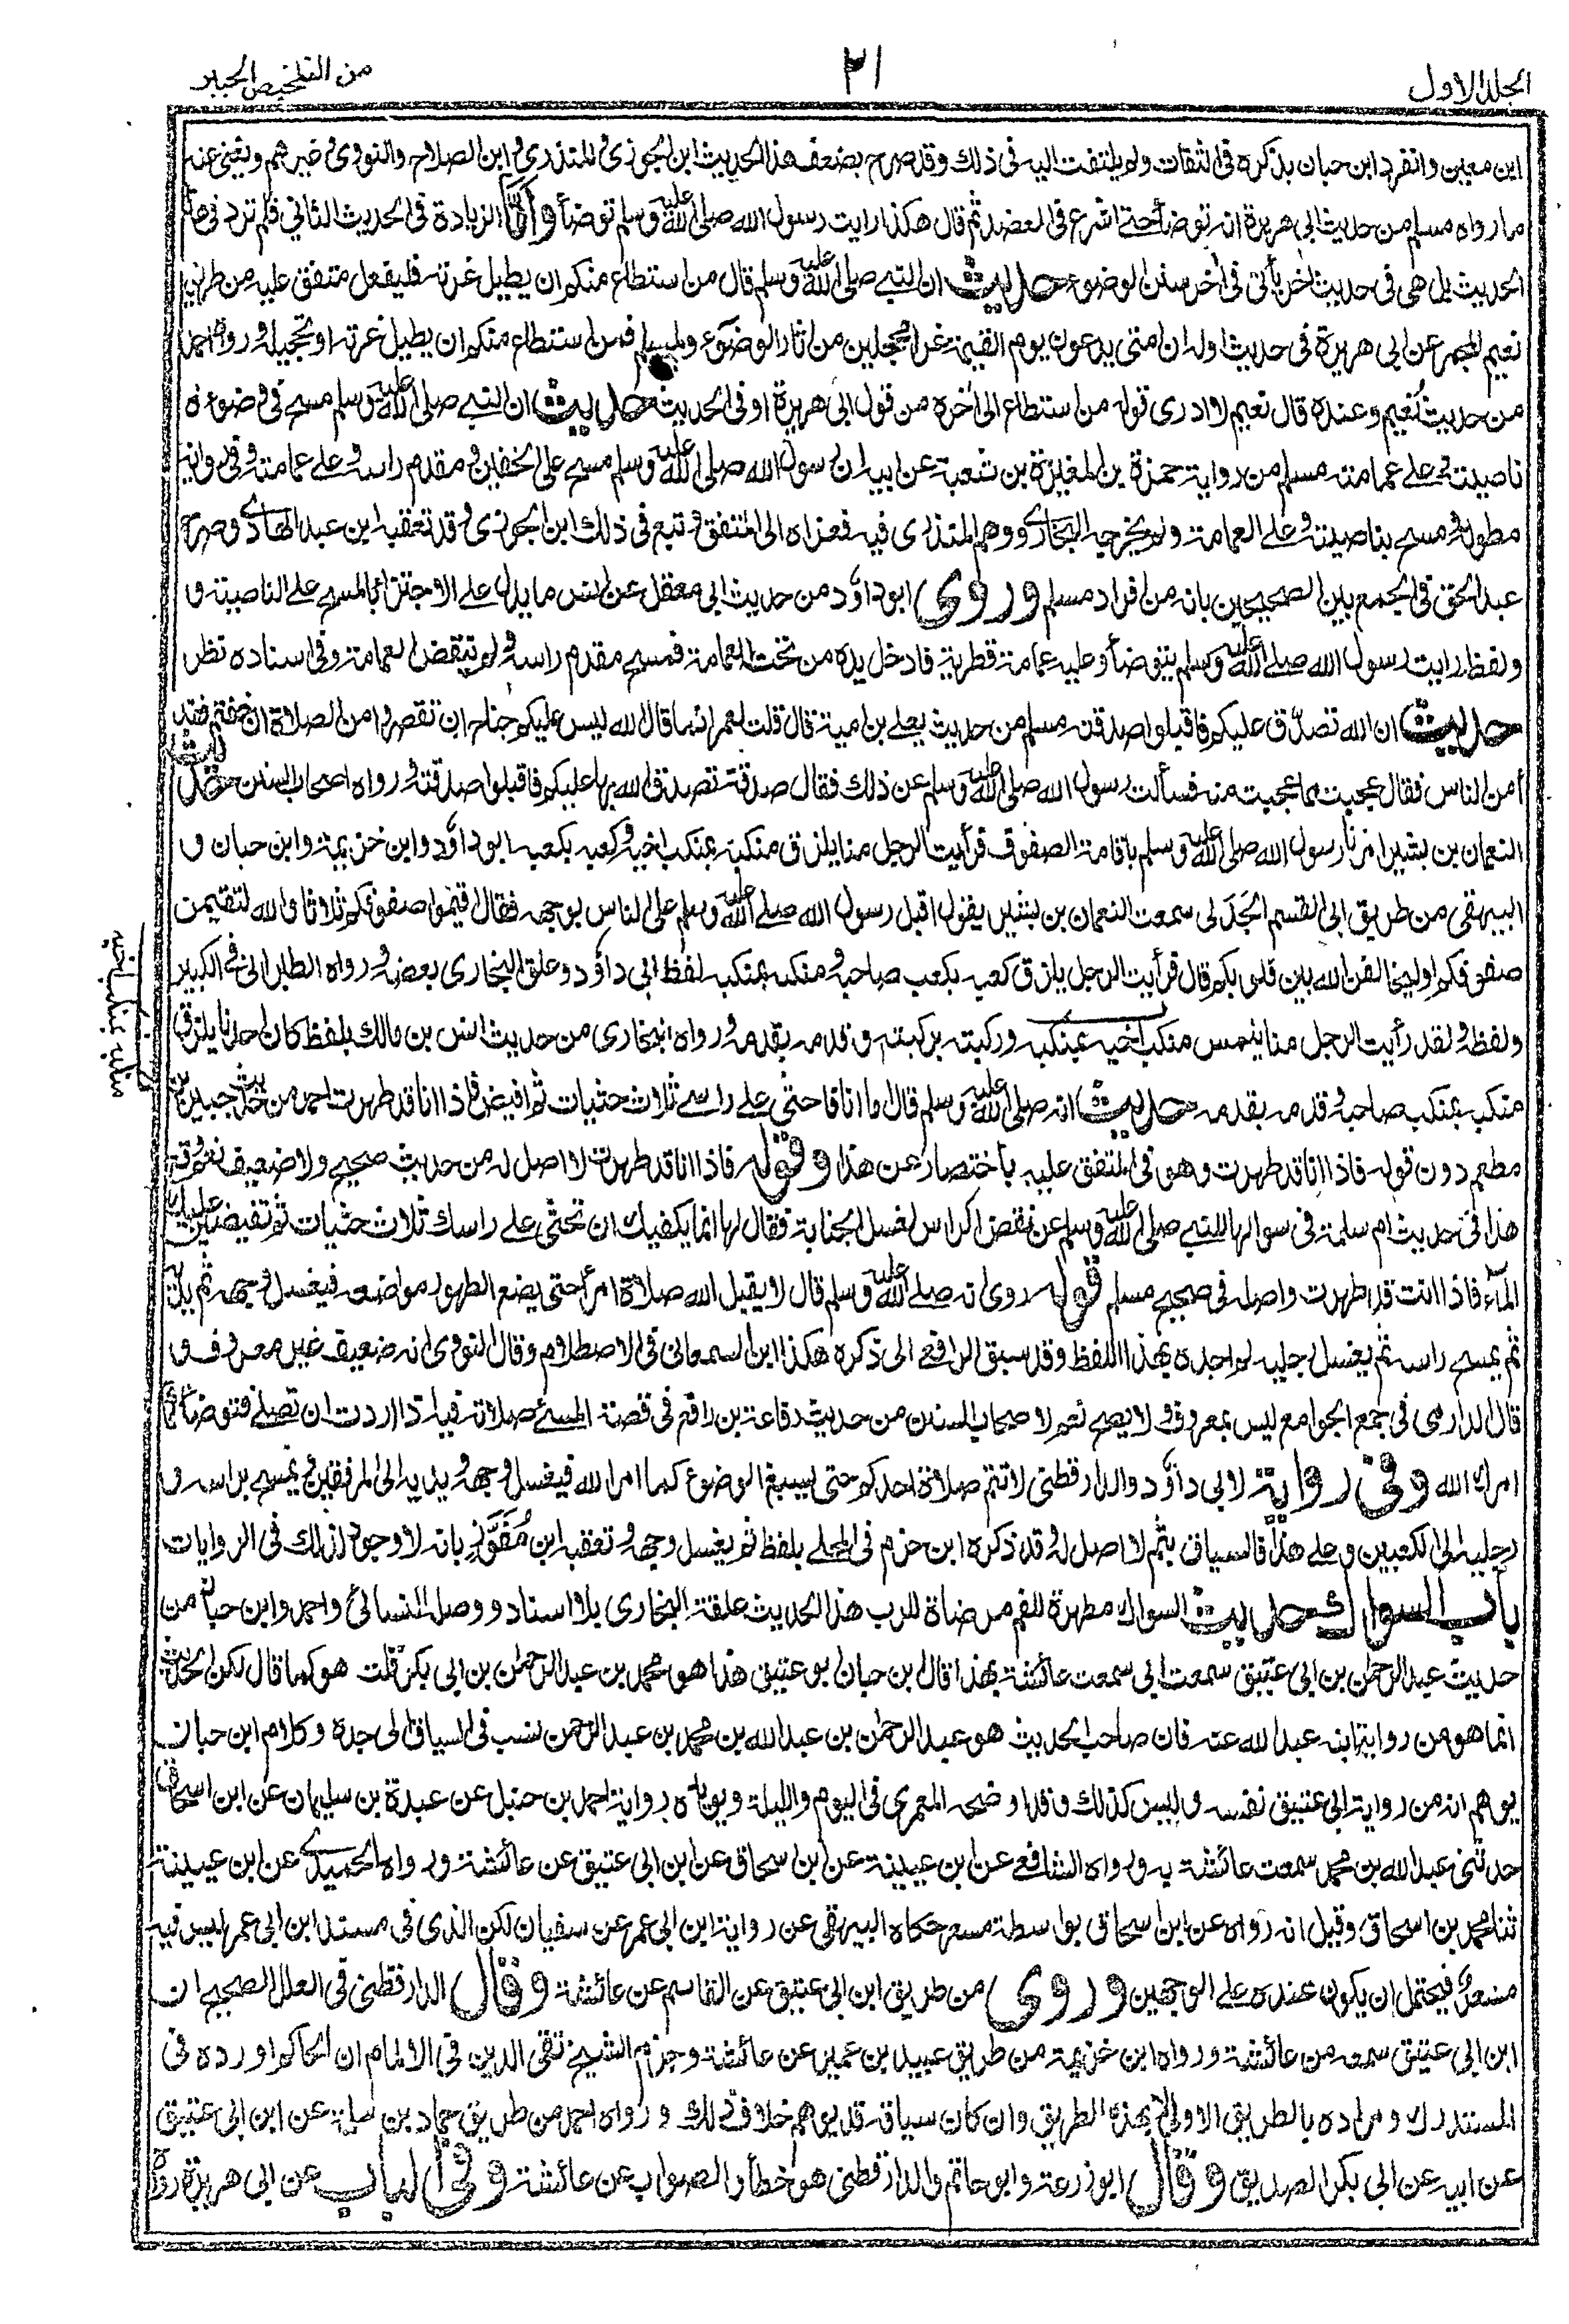 الجلد الاول
٢١
من التلخيص الحبير
ابن معين وانفرد ابن حبان بذكره في الثقات ولم يلتفت اليه في ذلك وقد صرح بضعف هذا الحديث ابن الجوزي والمنذري وابن الصلاح والنووي وغيرهم ويغني عنه
ما رواه مسلم من حديث ابي هريرة انه توضأ حتى اشرع في العضد ثم قال هكذا رايت رسول الله صلى الله عليه وسلم توضأ وأما الزيادة في الحديث الثاني فلم ترد في هذا
الحديث بل هي في حديث اخر يأتي في آخر سنن الوضوء حديث ان النبي صلى الله عليه وسلم قال من استطاع منكم ان يطيل غرته فليفعل متفق عليه من طريق
نعيم المجمر عن ابي هريرة في حديث اوله ان امتي يدعون يوم القيمة غرا محجلين من آثار الوضوء ولمسلم فمن استطاع منكم ان يطيل غرته او تحجيله ورواه احمد
من حديث نعيم وعنده قال نعيم لا ادري قوله من استطاع الى آخره من قول ابي هريرة او في الحديث حديث ان النبي صلى الله عليه وسلم مسح في وضوءه
ناصيته وعلى عمامته مسلم من رواية حمزة بن المغيرة بن شعبة عن ابيه ان رسول الله صلى الله عليه وسلم مسح على الخفين ومقدم راسه وعلى عمامته وفي رواية
مطولة ومسح بناصيته وعلى العمامة ولم يخرجه البخاري ووهم المنذري فيه فعزاه الى المتفق وتبع في ذلك ابن الجوزي وقد تعقبه ابن عبد الهادي وصرح
عبد الحق في الجمع بين الصحيحين بانه من افراد مسلم وروى ابو داؤد من حديث ابي معقل عن انس ما يدل على الاجتزاء بالمسح على الناصية و
ولفظه رايت رسول الله صلى الله عليه وسلم يتوضأ وعليه عمامة قطرية فادخل يده من تحت العمامة فمسح مقدم راسه ولم ينقض العمامة وفي اسناده نظر
حديث ان الله تصدق عليكم فاقبلوا صدقته مسلم من حديث يعلى بن امية قال قلت لعمر انما قال الله ليس عليكم جناح ان تقصروا من الصلاة ان خفتم فقد
أمن الناس فقال عجبت مما عجبت منه فسألت رسول الله صلى الله عليه وسلم عن ذلك فقال صدقة تصدق الله بها عليكم فاقبلوا صدقته ورواه اصحاب السنن حديث
النعمان بن بشير امرنا رسول الله صلى الله عليه وسلم باقامة الصفوف فرأيت الرجل منا يلزق منكبه بمنكب اخيه وكعبه بكعبه ابو داؤد وابن خزيمة وابن حبان و
البيهقي من طريق ابي القسم الجدلي سمعت النعمان بن بشير يقول اقبل رسول الله صلى الله عليه وسلم على الناس بوجهه فقال اقيموا صفوفكم ثلاثا والله لتقيمن
صفوفكم او ليخالفن الله بين قلوبكم قال فرأيت الرجل يلزق كعبه بكعب صاحبه ومنكبه بمنكبه لفظ ابي داؤد وعلق البخاري بعضه ورواه الطبراني في الكبير
ولفظه ولقد رأيت الرجل منا يلتمس منكب اخيه بمنكبه وركبته بركبته وقدمه بقدمه ورواه البخاري من حديث انس بن مالك بلفظ كان احدنا يلزق
منكبه بمنكب صاحبه وقدمه بقدمه حديث انه صلى الله عليه وسلم قال اما انا فاحثي على راسي ثلاث حثيات ثم افيض فاذا انا قد طهرت احمد من حديث جبير بن
مطعم دون قوله فاذا انا قد طهرت وهو في المتفق عليه باختصار عن هذا وقوله فاذا انا قد طهرت لا اصل له من حديث صحيح ولا ضعيف نعم وقع
هذا في حديث ام سلمة في سوالها للنبي صلى الله عليه وسلم عن نقض الراس لغسل الجنابة فقال لها انما يكفيك ان تحثي على راسك ثلاث حثيات ثم تفيضين عليك
الماء فاذا انت قد طهرت واصله في صحيح مسلم قوله روي انه صلى الله عليه وسلم قال لا يقبل الله صلاة امرأ حتى يضع الطهور مواضعه فيغسل وجهه ثم يديه
ثم يمسح راسه ثم يغسل رجليه لم اجده بهذا اللفظ وقد سبق الرافعي الى ذكره هكذا ابن السمعاني في الاصطلام وقال النووي انه ضعيف غير معروف و
قال الدارمي في جمع الجوامع ليس بمعروف ولا يصح نعم لاصحاب السنن من حديث رفاعة بن رافع في قصة المسئ صلاته فيه اذا اردت ان تصلي فتوضأ كما
امرك الله وفي رواية لابي داؤد والدارقطني لا تتم صلاة احدكم حتى يسبغ الوضوء كما امر الله فيغسل وجهه ويديه الى المرفقين ويمسح براسه و
رجليه الى الكعبين وعلى هذا فالسياق بثم لا اصل له وقد ذكره ابن حزم في المحلى بلفظ ثم يغسل وجهه وتعقبه ابن مفوز بانه لا وجود لذلك في الروايات
باب السواك حديث السواك مطهرة للفم مرضاة للرب هذا الحديث علقه البخاري بلا اسناد ووصله النسائي واحمد وابن حبان من
حديث عبد الرحمن بن ابي عتيق سمعت ابي سمعت عائشة بهذا قال ابن حبان ابو عتيق هذا هو محمد بن عبد الرحمن بن ابي بكر قلت هو كما قال لكن الحديث
انما هو من رواية ابنه عبد الله عنه فان صاحب الحديث هو عبد الرحمن بن عبد الله بن محمد بن عبد الرحمن نسب في السياق الى جده وكلام ابن حبان
يوهم انه من رواية ابي عتيق نفسه وليس كذلك وقد اوضحه المعمري في اليوم والليلة ويويده رواية احمد بن حنبل عن عبدة بن سليمان عن ابن اسحاق
حدثني عبد الله بن محمد سمعت عائشة به ورواه الشافعي عن ابن عيينة عن ابن اسحاق عن ابن ابي عتيق عن عائشة ورواه الحميدي عن ابن عيينة
ثنا محمد بن اسحاق وقيل انه رواه عن ابن اسحاق بواسطة مسعر حكاه البيهقي عن رواية ابن ابي عمر عن سفيان لكن الذي في مسند ابن ابي عمر ليس فيه
مسعر فيحتمل ان يكون عنده على الوجهين وروى من طريق ابن ابي عتيق عن القاسم عن عائشة وقال الدارقطني في العلل الصحيح ان
ابن ابي عتيق سمعه من عائشة ورواه ابن خزيمة من طريق عبيد بن عمير عن عائشة وجزم الشيخ تقي الدين في الالمام ان الحاكم اورده في
المستدرك ومراده بالطريق الاولى بهذه الطريق وان كان سياقه قد يوهم خلاف ذلك ورواه احمد من طريق حماد بن سلمة عن ابن ابي عتيق
عن ابيه عن ابي بكر الصديق وقال ابو زرعة وابو حاتم والدارقطني هو خطأ والصواب عن عائشة وفي الباب عن ابي هريرة رواه